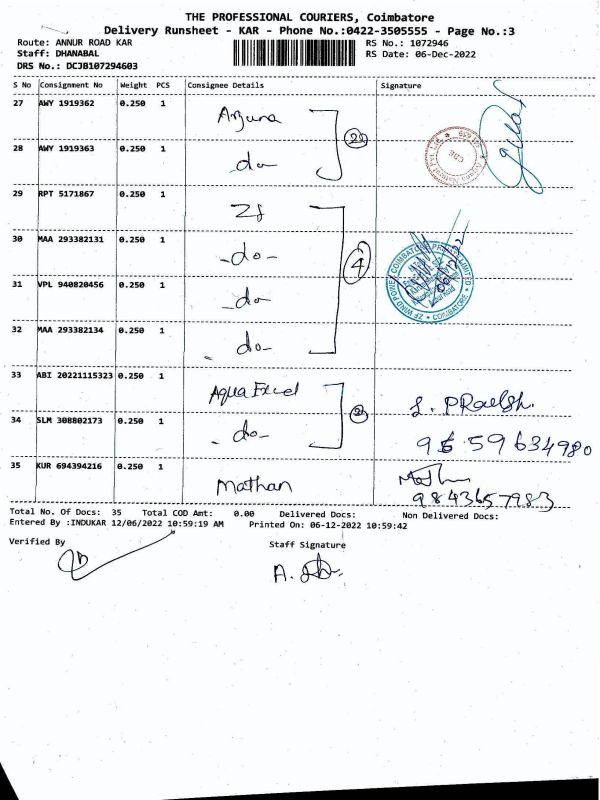 THE PROFESSIONAL COURIERS, Coimbatore
Delivery Runsheet - KAR - Phone No.:0422-3505555 - Page No.:3
Route: ANNUR ROAD KAR RS No.: 1072946
Staff: DHANABAL RS Date: 06-Dec-2022
DRS No.: DCJB107294603
S No Consignment No Weight PCS Consignee Details Signature
27 AWY 1919362 0.250 1 Arjuna
28 AWY 1919363 0.250 1 -do-
29 RPT 5171867 0.250 1 ZF
30 MAA 293382131 0.250 1 -do-
4
31 VPL 940820456 0.250 1 -do-
ZF WIND POWER COIMBATORE PRIVATE LIMITED * COIMBATORE *
06/12/22
32 MAA 293382134 0.250 1 - do-
33 ABI 20221115323 0.250 1 Aqua Excel
2
34 SLM 308802173 0.250 1 - do- 9659634980
35 KUR 694394216 0.250 1 Mathan 9843657983
Total No. Of Docs: 35 Total COD Amt: 0.00 Delivered Docs: Non Delivered Docs:
Entered By :INDUKAR 12/06/2022 10:59:19 AM Printed On: 06-12-2022 10:59:42
Verified By Staff Signature